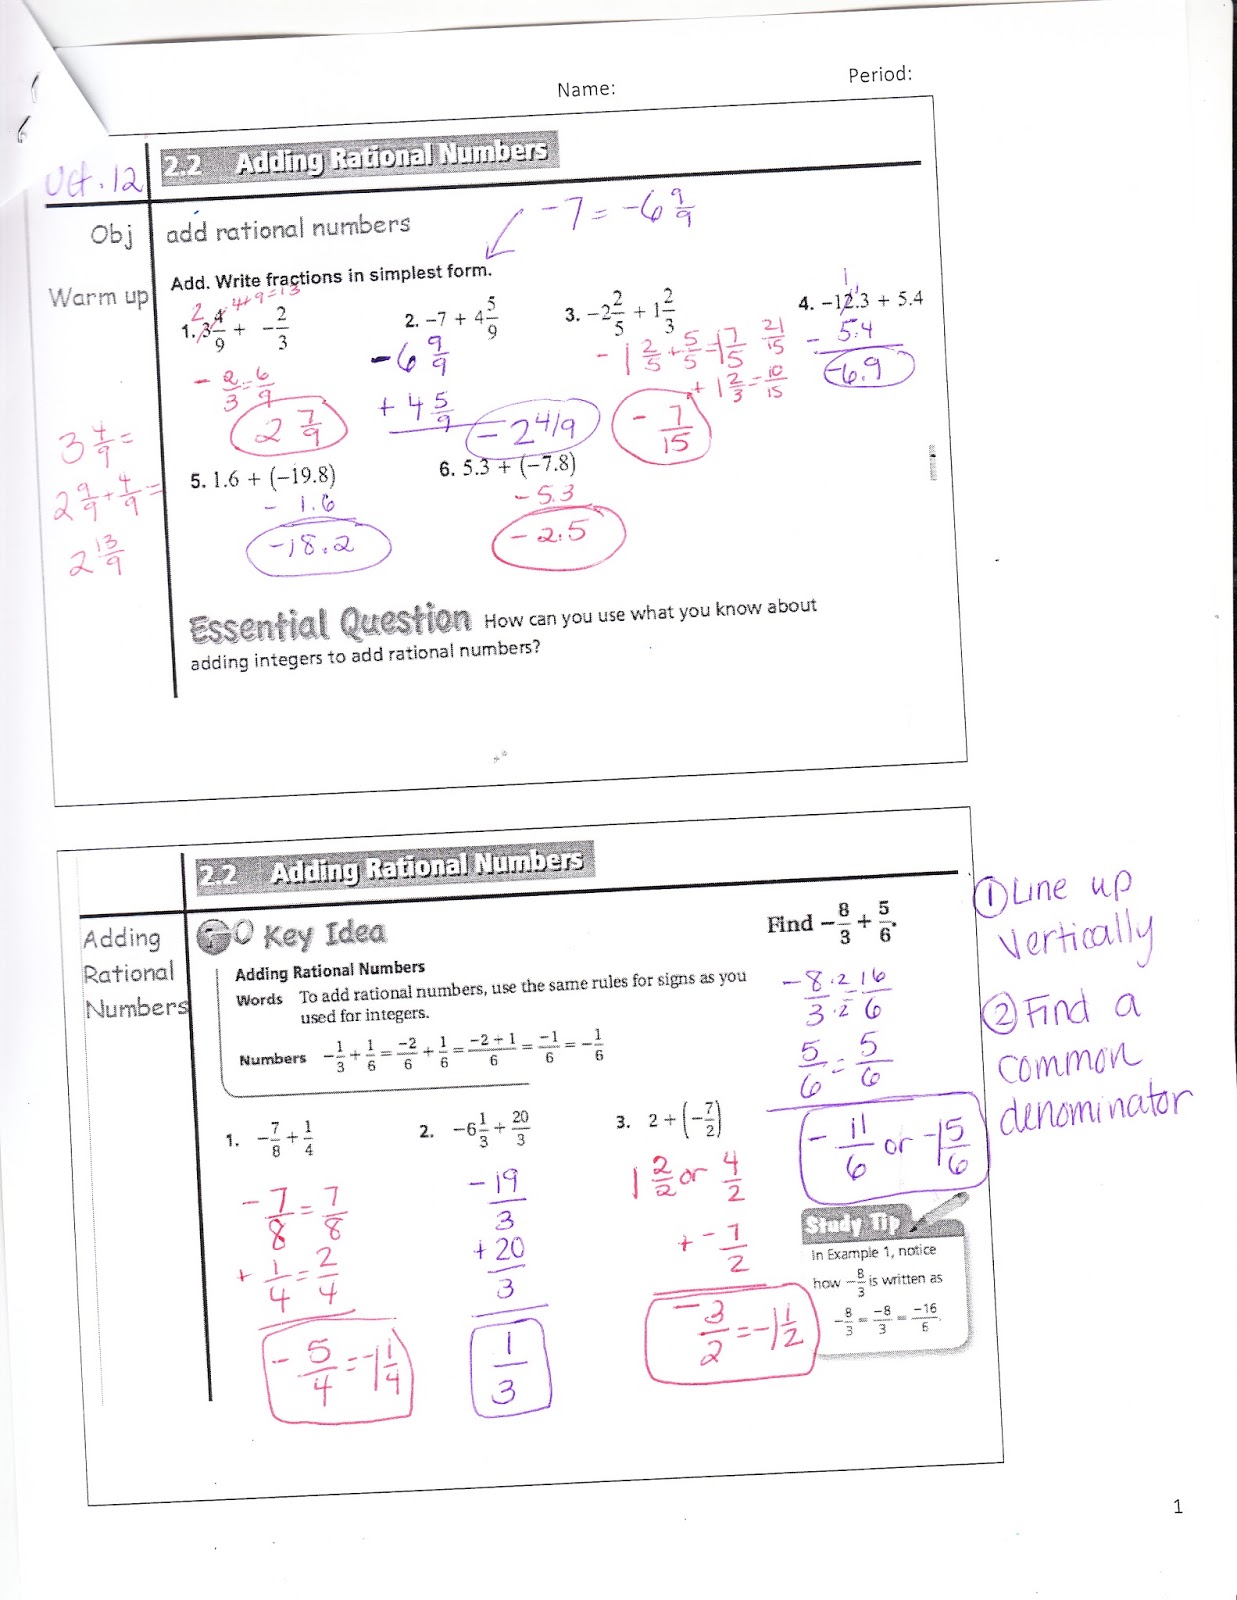 Name:
Period:
Oct. 12
2.2 Adding Rational Numbers
Obj
add rational numbers
-7 = -6 9/9
Warm up
Add. Write fractions in simplest form.
2 4+9=13
1. 3 4/9 + -2/3
- 2/3 = 6/9
2 7/9
2. -7 + 4 5/9
-6 9/9
+ 4 5/9
-2 4/9
3. -2 2/5 + 1 2/3
-1 2/5 + 5/5 = 17/5 21/15
+ 1 2/3 = 10/15
- 7/15
4. -12.3 + 5.4
- 5.4
-6.9
3 4/9 =
2 9/9 + 4/9 =
2 13/9
5. 1.6 + (-19.8)
- 1.6
-18.2
6. 5.3 + (-7.8)
- 5.3
-2.5
Essential Question How can you use what you know about
adding integers to add rational numbers?
2.2 Adding Rational Numbers
Adding
Rational
Numbers
Key Idea
Adding Rational Numbers
Words To add rational numbers, use the same rules for signs as you
used for integers.
Numbers -1/3 + 1/6 = -2/6 + 1/6 = -2+1/6 = -1/6 = -1/6
Find -8/3 + 5/6.
-8/3 ·2/·2 = 16/6
5/6 = 5/6
- 11/6 or -1 5/6
① Line up
vertically
② Find a
common
denominator
1. -7/8 + 1/4
- 7/8 = 7/8
+ 1/4 = 2/4
- 5/4 = -1 1/4
2. -6 1/3 + 20/3
-19/3
+ 20/3
1/3
3. 2 + (-7/2)
1 2/2 or 4/2
+ -7/2
-3/2 = -1 1/2
Study Tip
In Example 1, notice
how -8/3 is written as
-8/3 = -8/3 = -16/6.
1